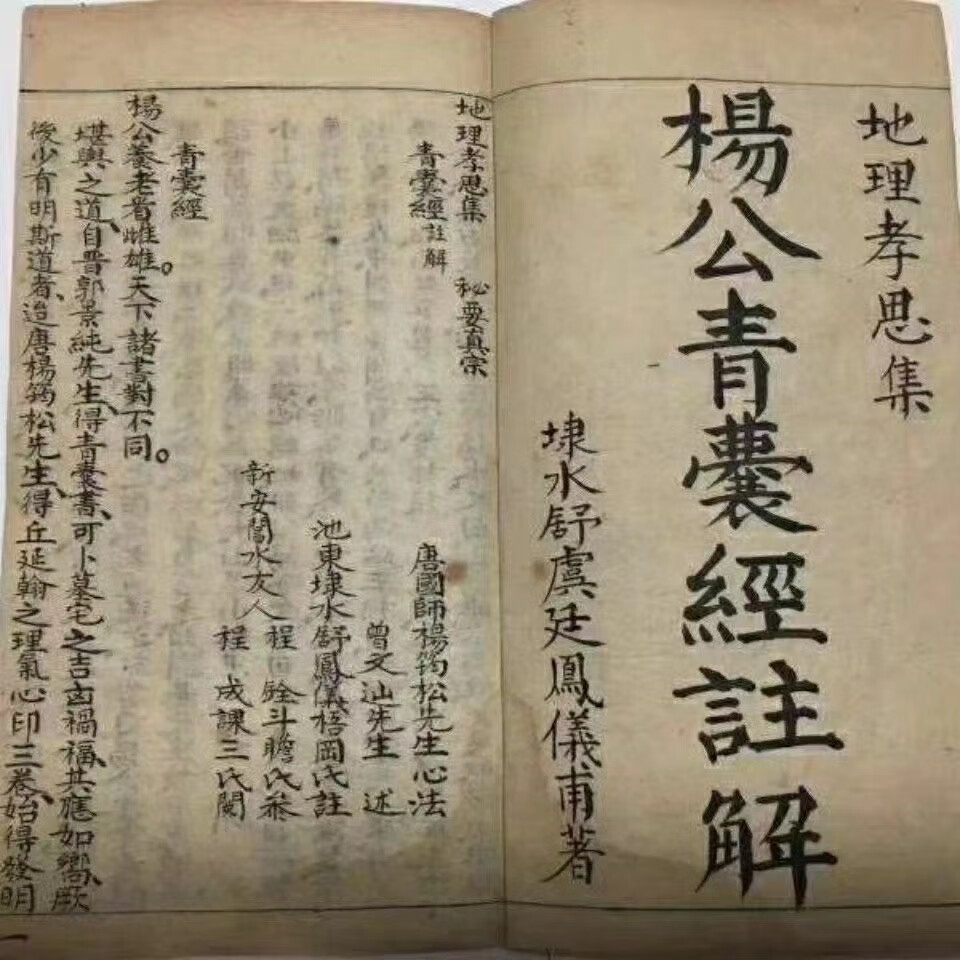 地理孝思集
楊公青囊經註解
埭水舒虞廷鳳儀甫著
地理孝思集 秘要真宗
青囊經註解
唐國師楊筠松先生心法
曾文辿先生 述
池東埭水舒鳳儀梧岡氏註
程 斗瞻氏叅
新安閶水友人
程 成課三氏閱
青囊經
楊公養老看雌雄。天下諸書對不同。
堪輿之道、自晋郭景純先生、得青囊書、可卜墓宅之吉凶禍福、其應如嚮、厥
後少有明斯道者、迨唐楊筠松先生、得丘延翰之理氣心印三卷、始得發明
一